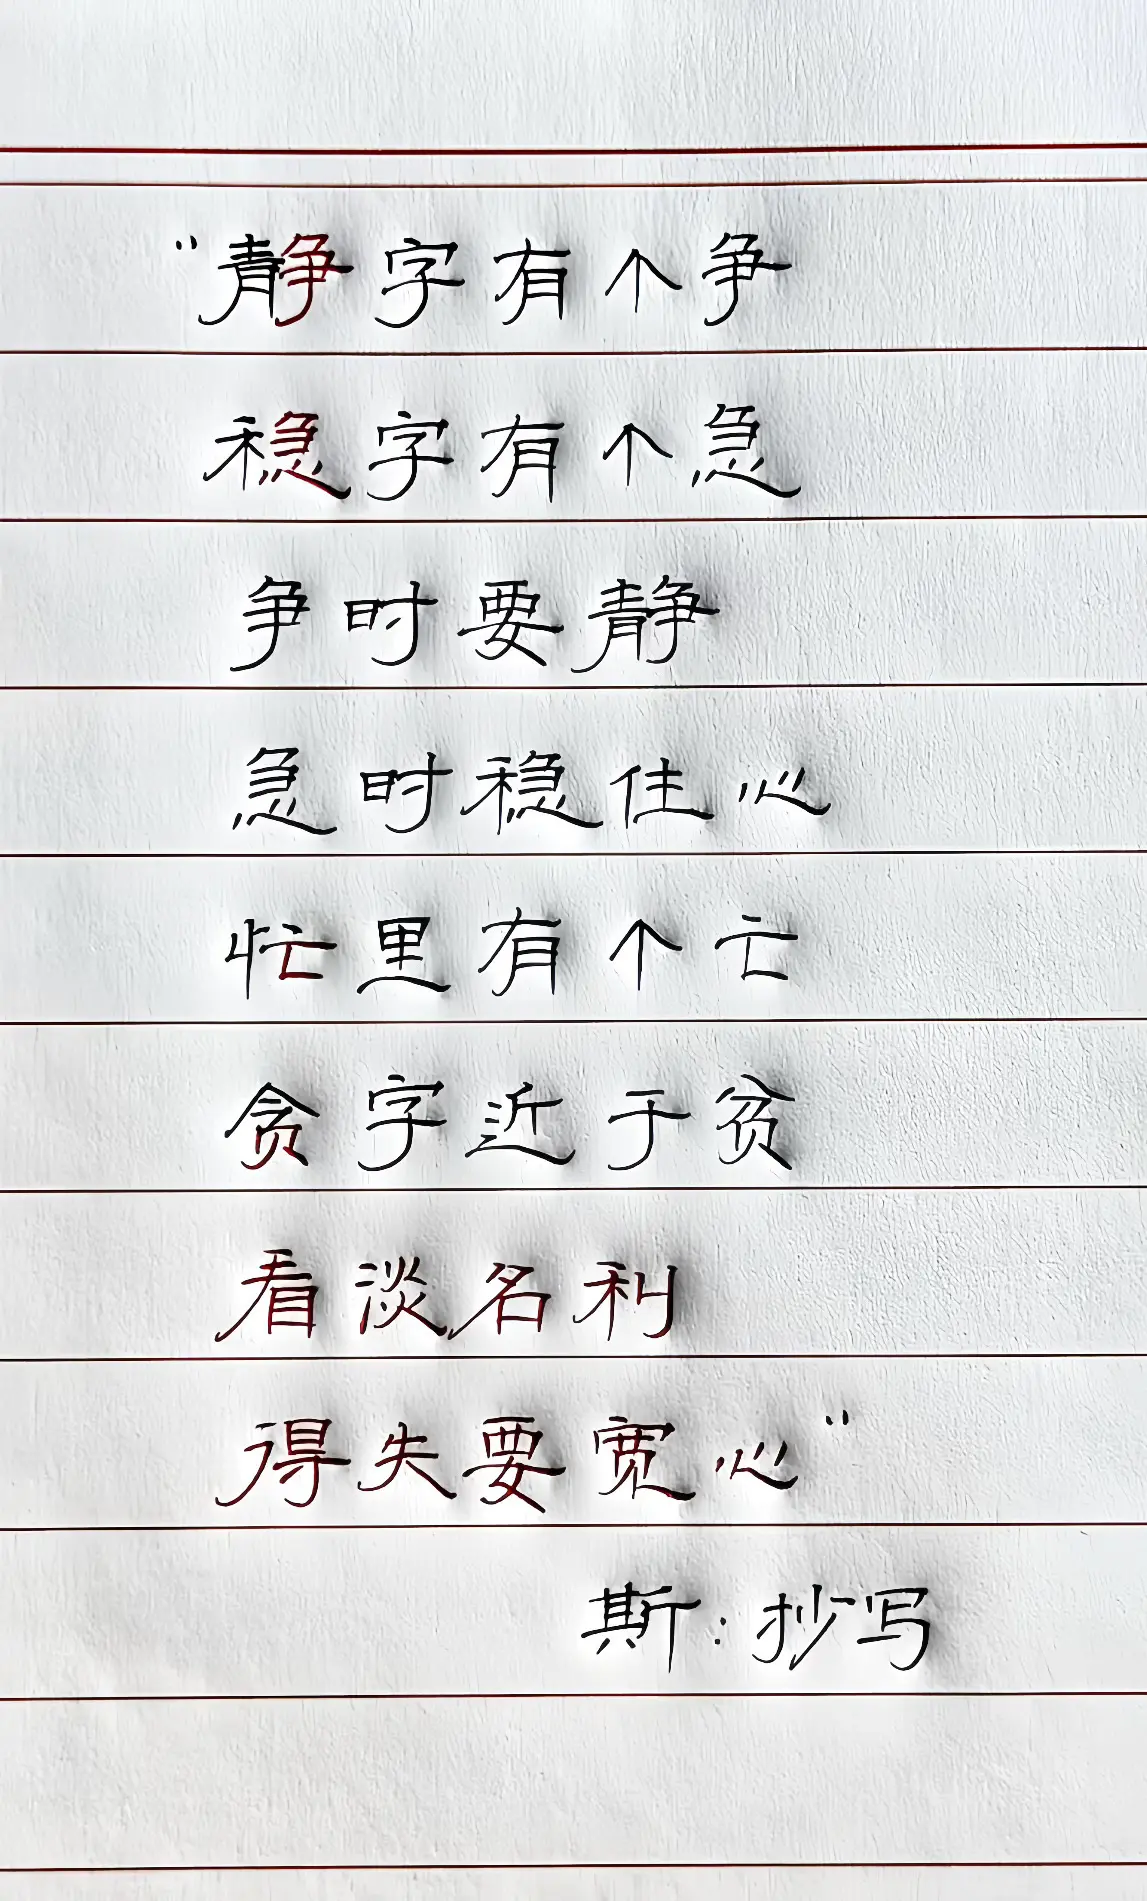 "静字有个争
稳字有个急
争时要静
急时稳住心
忙里有个亡
贪字近于贫
看淡名利
得失要宽心"
斯:抄写